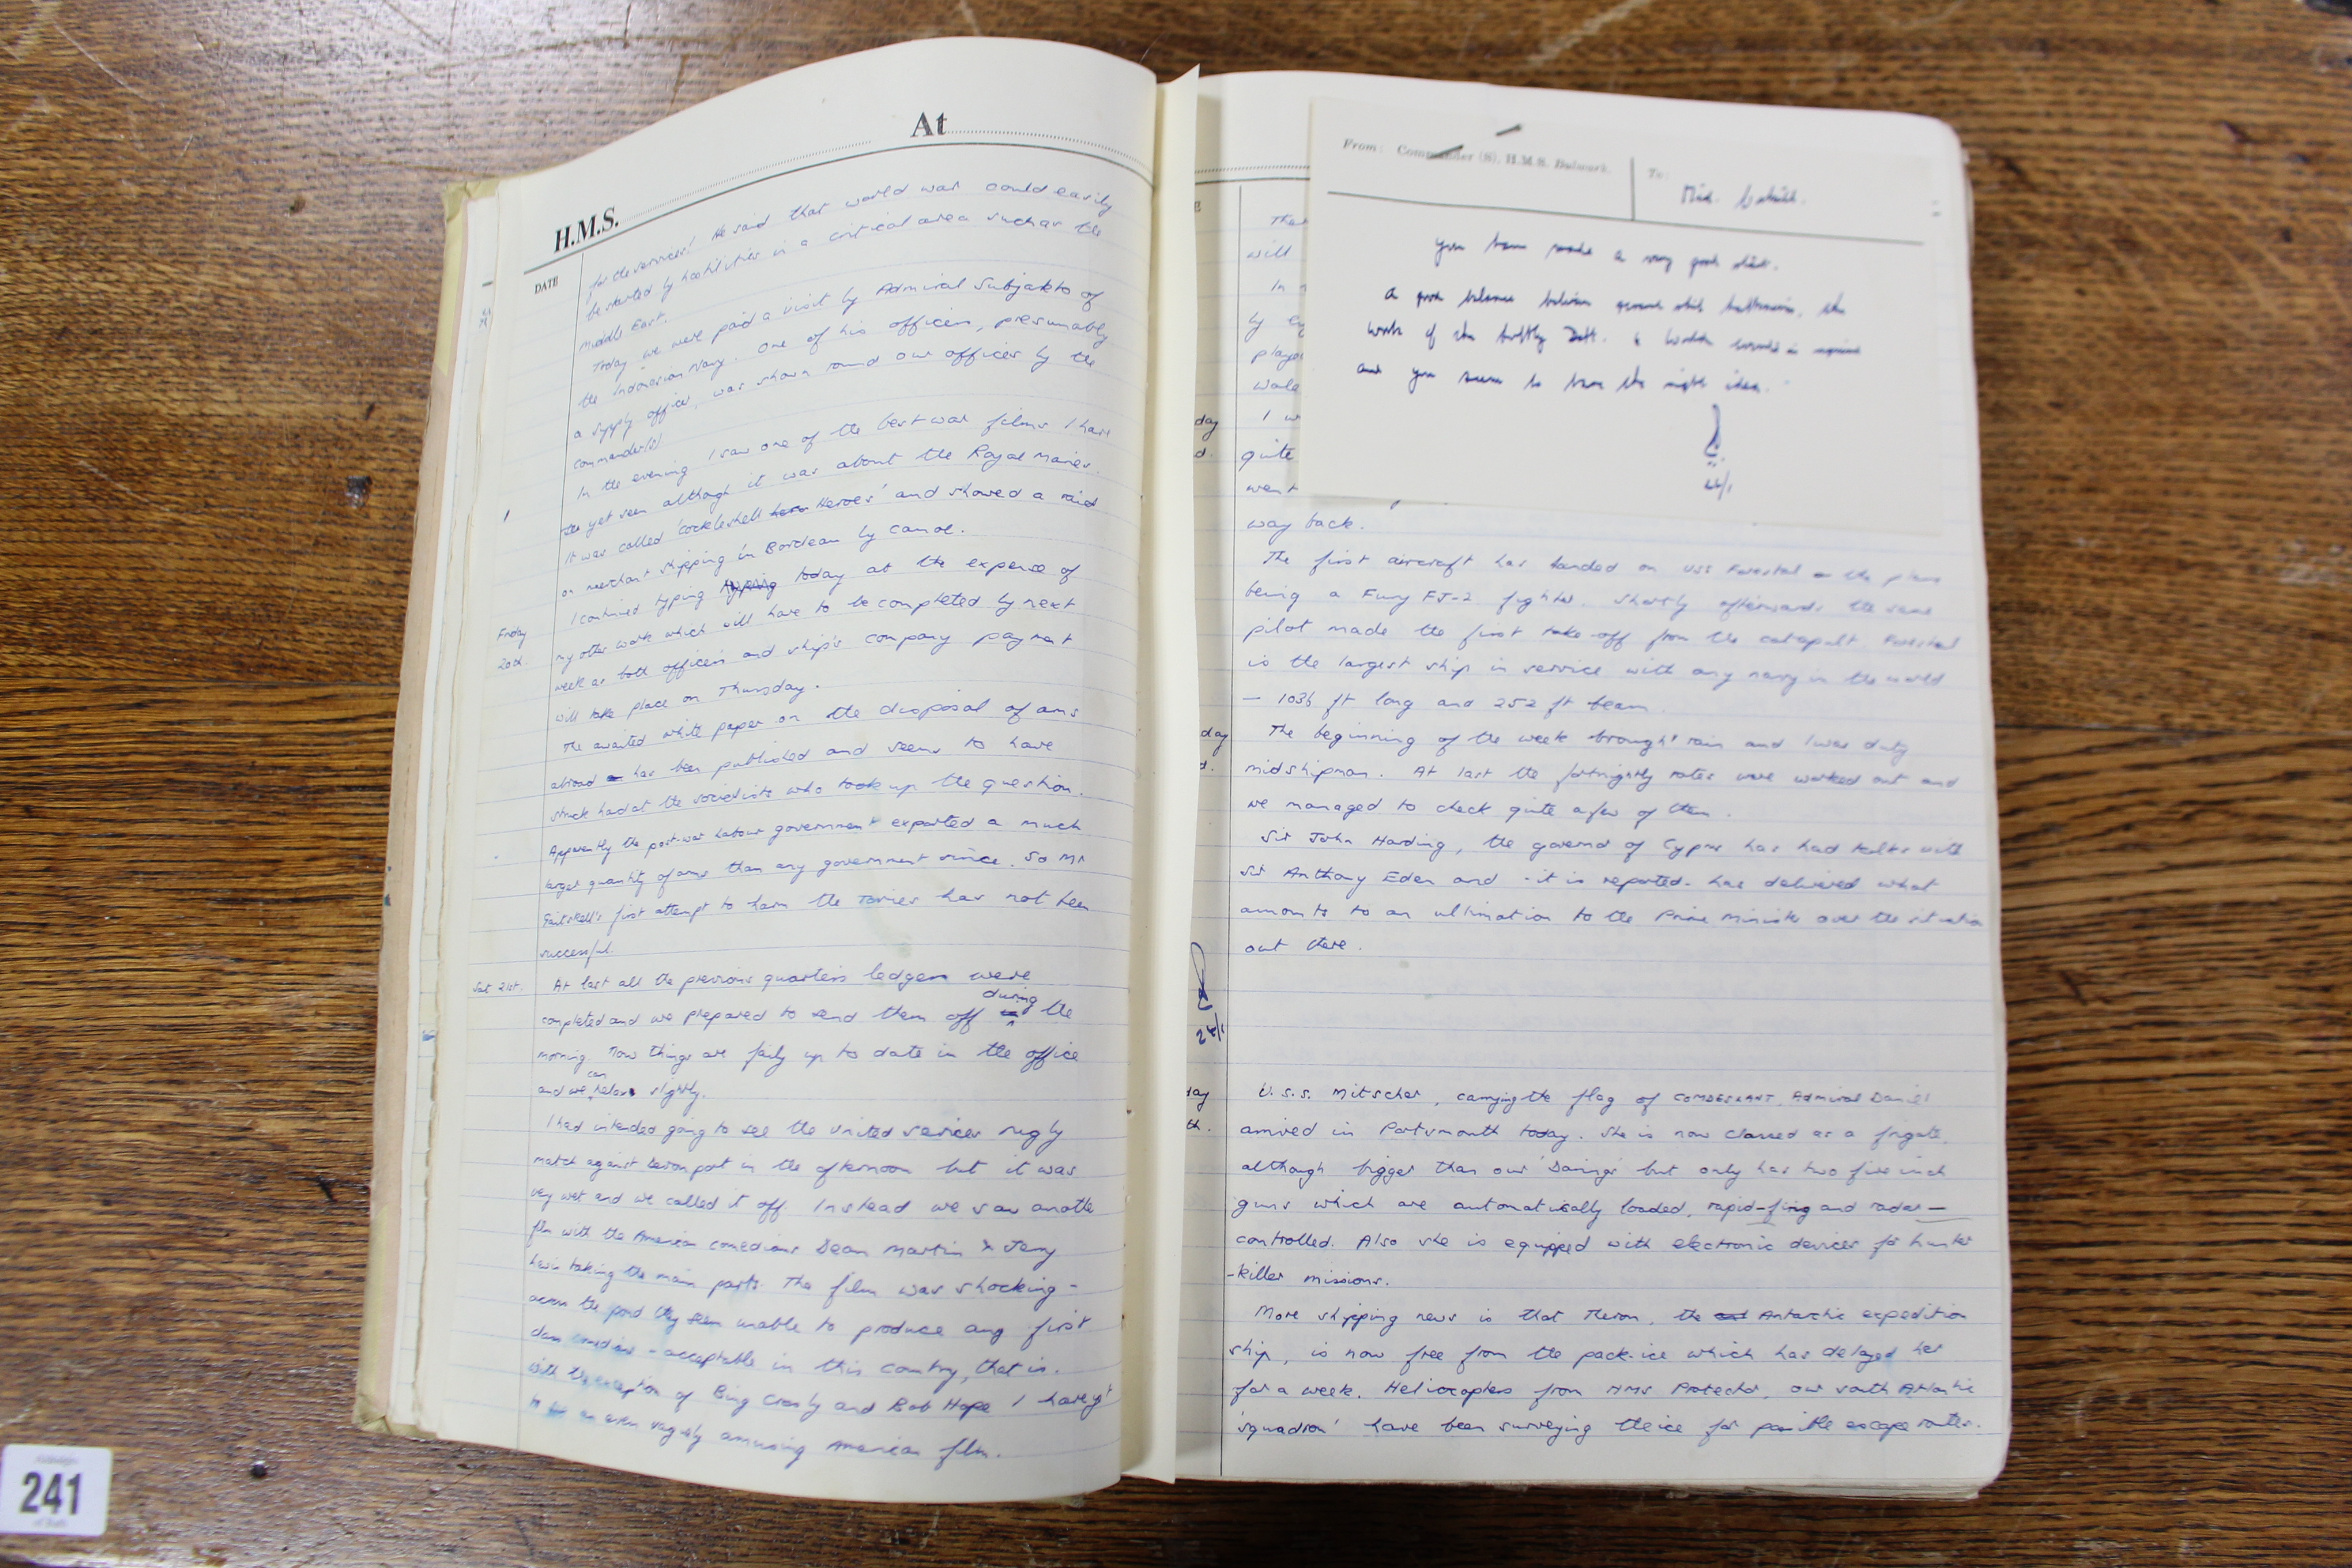 H.M.S. At
DATE
for the services! He said that world war could easily
be started by hostilities in a critical area such as the
Middle East.
Today we were paid a visit by Admiral Subjakto of
the Indonesian Navy. One of his officers, presumably
a supply officer, was shown round our offices by the
commander(s)
In the evening I saw one of the best war films I have
yet seen although it was about the Royal Marines.
It was called 'Cockleshell Heroes' and showed a raid
on merchant shipping in Bordeaux by canoe.
Friday
20th.
I continued typing typing today at the expense of
my other work which will have to be completed by next
week as both officers and ship's company payment
will take place on Thursday.
The awaited white paper on the disposal of arms
abroad has been published and seems to have
struck hard at the socialists who took up the question.
Apparently the post-war Labour government exported a much
larger quantity of arms than any government since. So Mr
Gaitskell's first attempt to harm the Tories has not been
successful.
Sat 21st.
At last all the previous quarter's ledgers were
during
completed and we prepared to send them off the
morning. Now things are fairly up to date in the office
can
and we relax slightly.
I had intended going to see the United Services rugby
match against Devonport in the afternoon but it was
very wet and we called it off. Instead we saw another
film with the American comedians Dean Martin & Jerry
Lewis taking the main parts. The film was shocking -
across the pond they seem unable to produce any first
class comedians - acceptable in this country, that is.
With the exception of Bing Crosby and Bob Hope I have yet
to an even vaguely amusing American film.
From: Commander (S), H.M.S. Bulwark.
To:
Mid.
You have made a very good start.
A good balance between general
work of the Supply Dept. &
and you seem to have the right idea.
E
Ther
will
In
by
playe
wala
day
d.
I w
quite
went
way back.
The first aircraft has landed on USS Forestal the plane
being a Fury FJ-2 fighter. Shortly afterwards the same
pilot made the first take-off from the catapult. Forestal
is the largest ship in service with any navy in the world
- 1036 ft long and 252 ft beam.
day
d.
The beginning of the week brought rain and I was duty
midshipman. At last the fortnightly rates were worked out and
we managed to check quite a few of them.
Sir John Harding, the governor of Cyprus has had talks with
Sir Anthony Eden and - it is reported - has delivered what
amounts to an ultimation to the Prime Minister over the situation
out there.
24/1
day
th.
U.S.S. Mitscher, carrying the flag of COMDESLANT, Admiral Daniel
arrived in Portsmouth today. She is now classed as a frigate,
although bigger than our 'Darings' but only has two five inch
guns which are automatically loaded, rapid-firing and radar-
controlled. Also she is equipped with electronic devices for hunter
-killer missions.
More shipping news is that Theron, the Antarctic expedition
ship, is now free from the pack-ice which has delayed her
for a week. Helicopters from HMS Protector, our South Atlantic
'squadron' have been surveying the ice for possible escape routes.
241